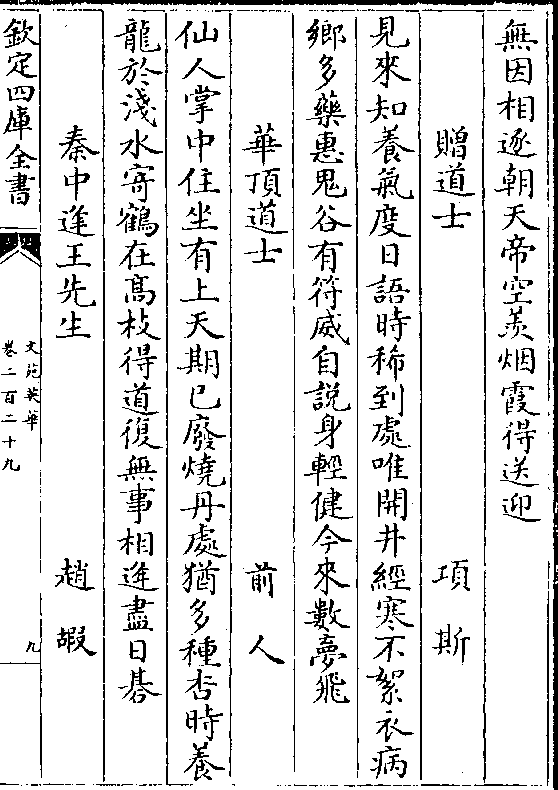 無因相逐朝天帝空羨烟霞得送迎
贈道士 項斯
見來知養氣度日語時稀到處唯開井經寒不絮衣病
鄉多藥惠鬼谷有符威自説身輕健今來數夢飛
華頂道士 前人
仙人掌中住坐有上天期已廢燒丹處猶多種杏時養
龍於淺水寄鶴在髙枝得道復無事相逢盡日碁
秦中逢王先生 趙嘏
欽定四庫全書
文苑英華
卷二百二十九
九